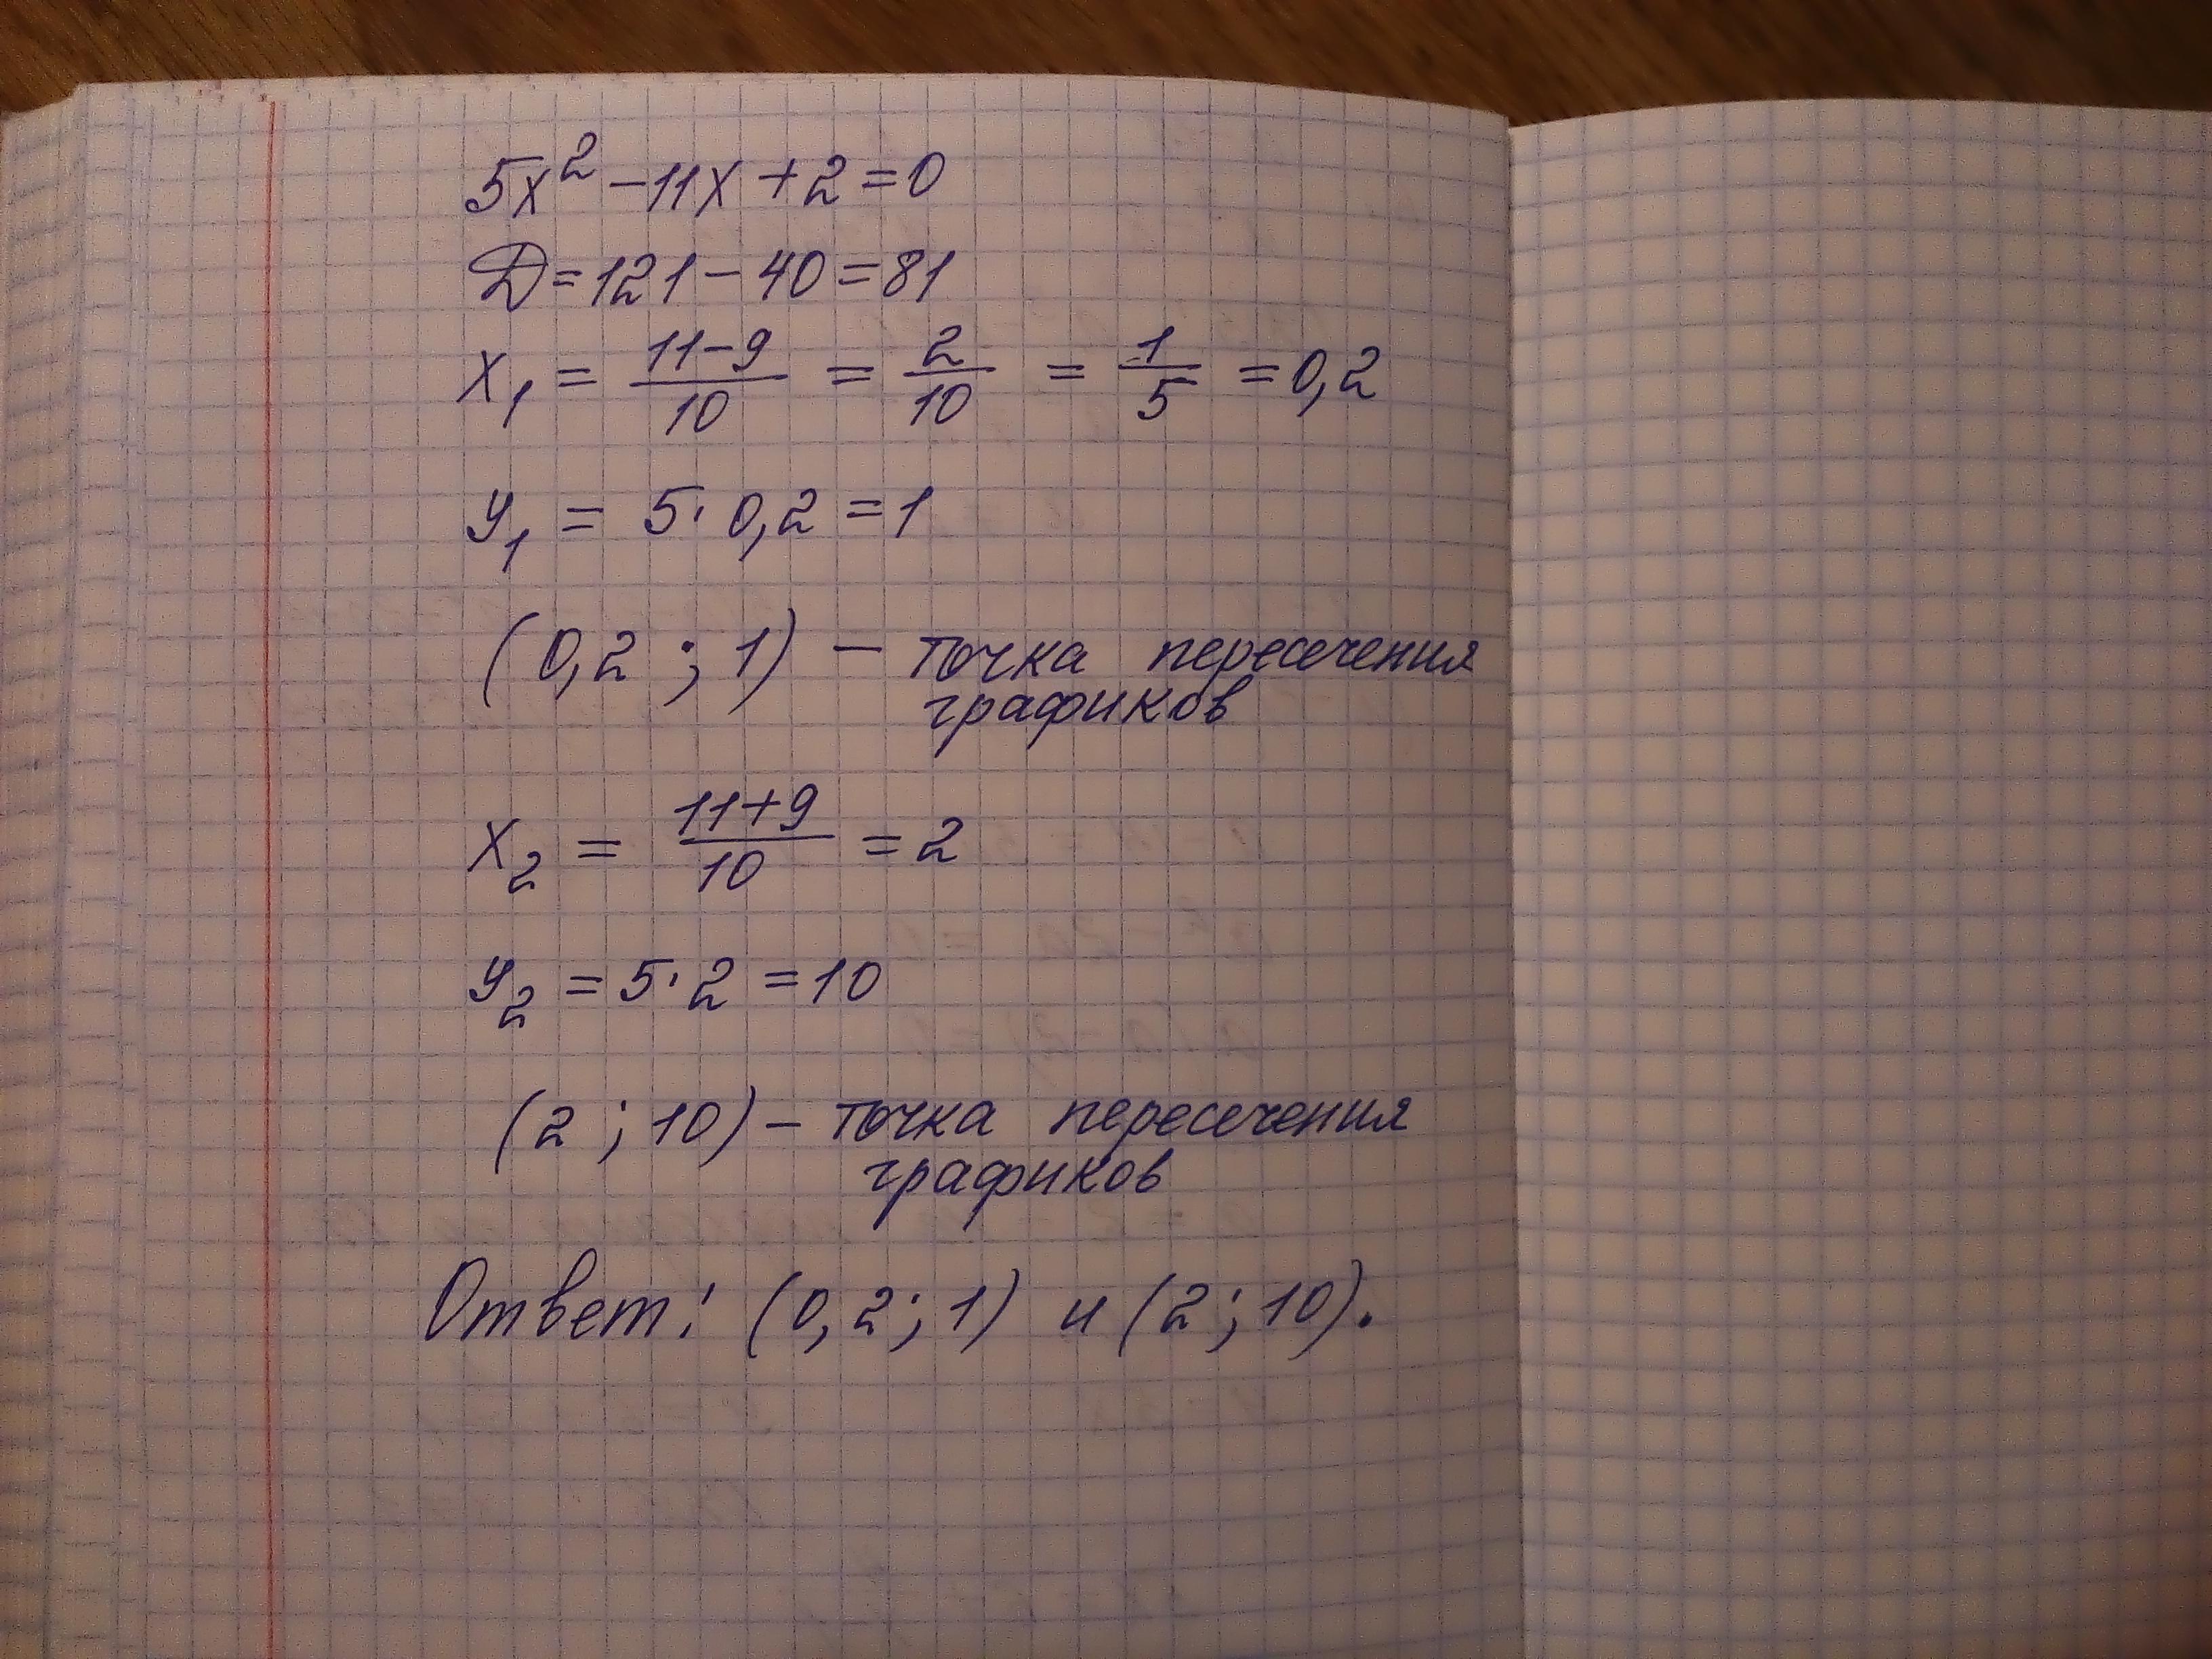 5x² - 11x + 2 = 0
D = 121 - 40 = 81
x₁ = 11-9/10 = 2/10 = 1/5 = 0,2
y₁ = 5 · 0,2 = 1
(0,2 ; 1) – точка пересечения
графиков
x₂ = 11+9/10 = 2
y₂ = 5 · 2 = 10
(2 ; 10) – точка пересечения
графиков
Ответ: (0,2 ; 1) и (2 ; 10).